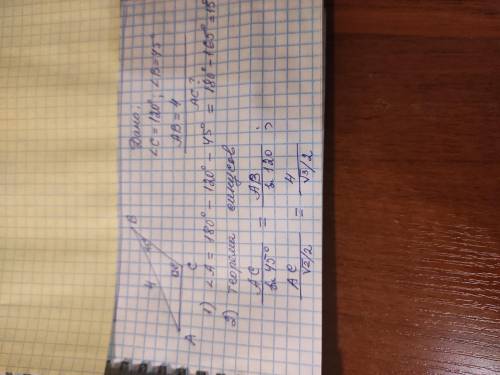 Дано:
∠C = 120°; ∠B = 45°
AB = 4
AC - ?
A
4
B
45°
C
1) ∠A = 180° - 120° - 45° = 180° - 165° = 15
2) Теорема синусов
AC / sin 45° = AB / sin 120° ;
AC / √2/2 = 4 / √3/2